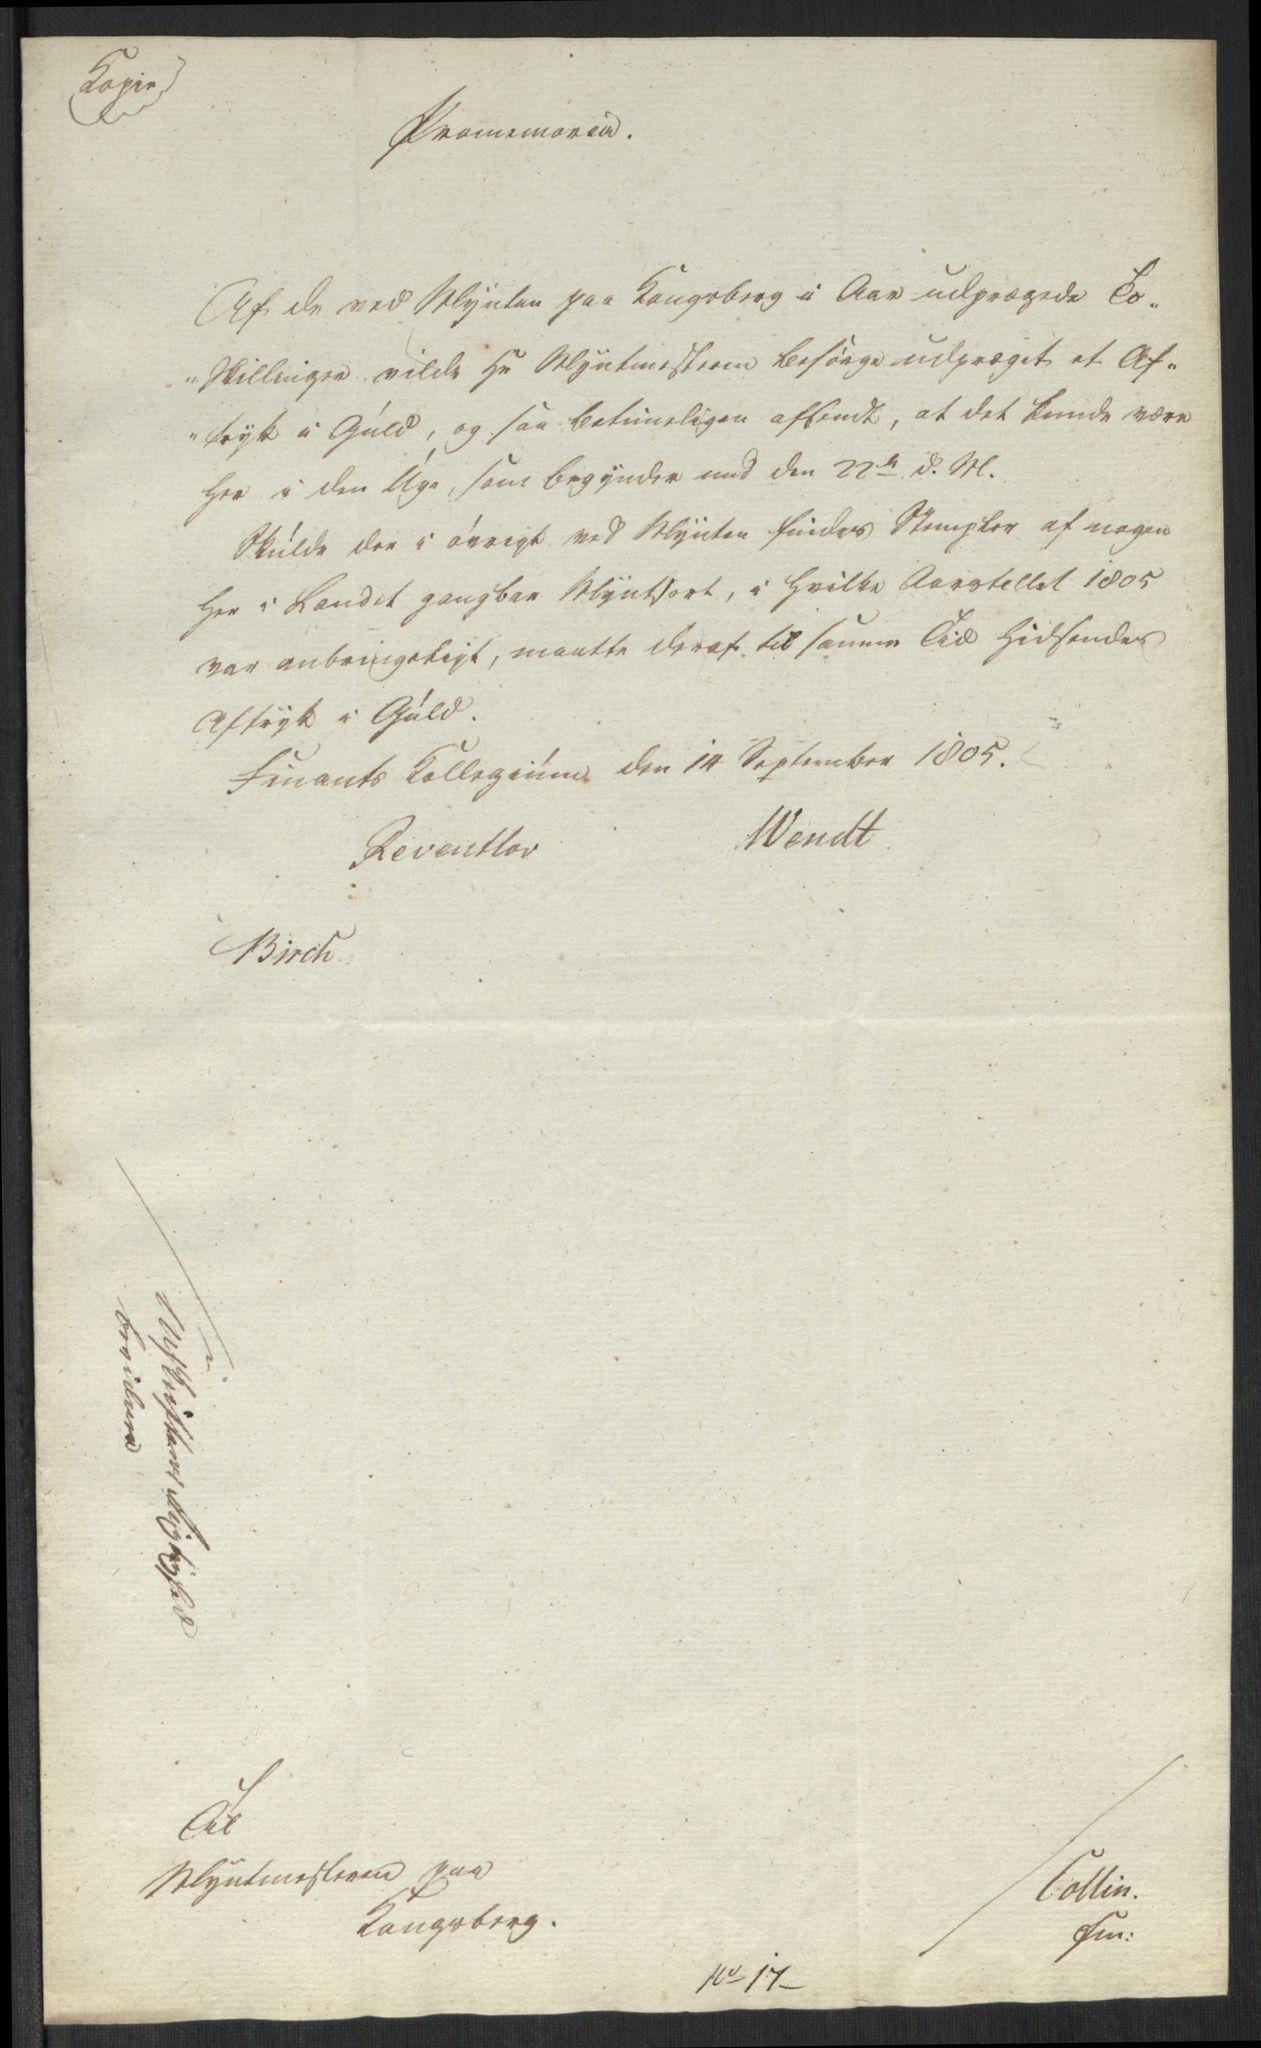 Kopie
Promemoria.
Af de ved Mynten paa Kongsberg i Aar udprægede To„
„skillinger vilde Hr Myntmesteren besörge udpræget et Af„
„tryk i Guld, og saa betimeligen afsendt, at det kunde være
her i den Uge, som begynder med den 22de d. M.
Skulde der i övrigt ved Mynten findes Stempler af nogen
her i Landet gangbar Myntsort, i hvilke Aarstallet 1805
var anbringeligt, maatte deraf til samme Tid hidsendes
Aftryk i Guld.
Finants Kollegium den 14 September 1805.
Reventlov Wendt
Birch
Afskriftens Rigtighed
Til
Myntmesteren paa
Kongsberg.
Collin.
No 17